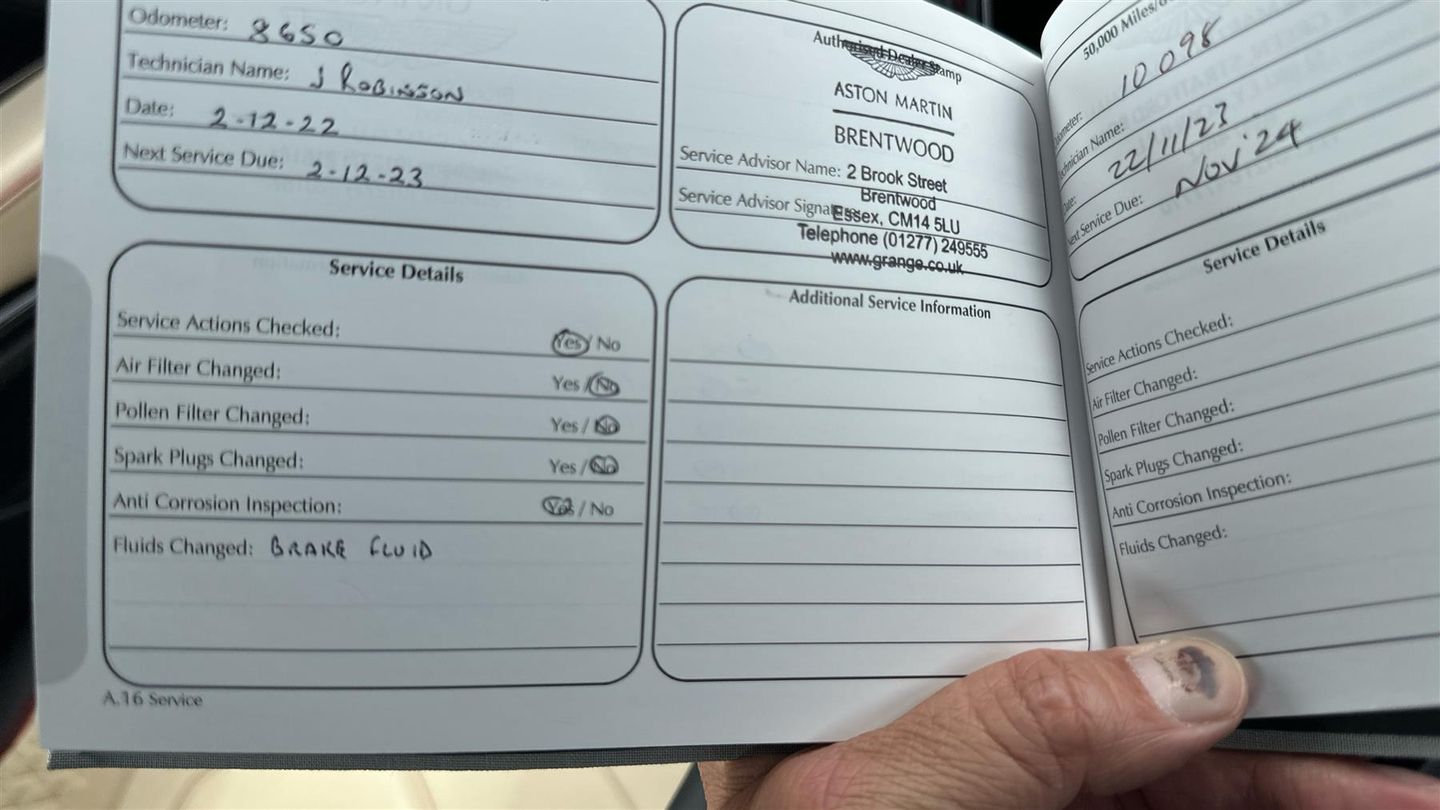 Odometer: 8650
Technician Name: J ROBINSON
Date: 2-12-22
Next Service Due: 2-12-23
Authorised Dealer Stamp
ASTON MARTIN
BRENTWOOD
Service Advisor Name: 2 Brook Street
Brentwood
Service Advisor Signa
Essex, CM14 5LU
Telephone (01277) 249555
www.grange.co.uk
Service Details
Service Actions Checked: Yes / No
Air Filter Changed: Yes / No
Pollen Filter Changed: Yes / No
Spark Plugs Changed: Yes / No
Anti Corrosion Inspection: Yes / No
Fluids Changed: BRAKE FLUID
A.16 Service
Additional Service Information
50,000 Miles/
Odometer: 10098
Technician Name:
Date: 22/11/23
Next Service Due: Nov '24
Service Details
Service Actions Checked:
Air Filter Changed:
Pollen Filter Changed:
Spark Plugs Changed:
Anti Corrosion Inspection:
Fluids Changed: